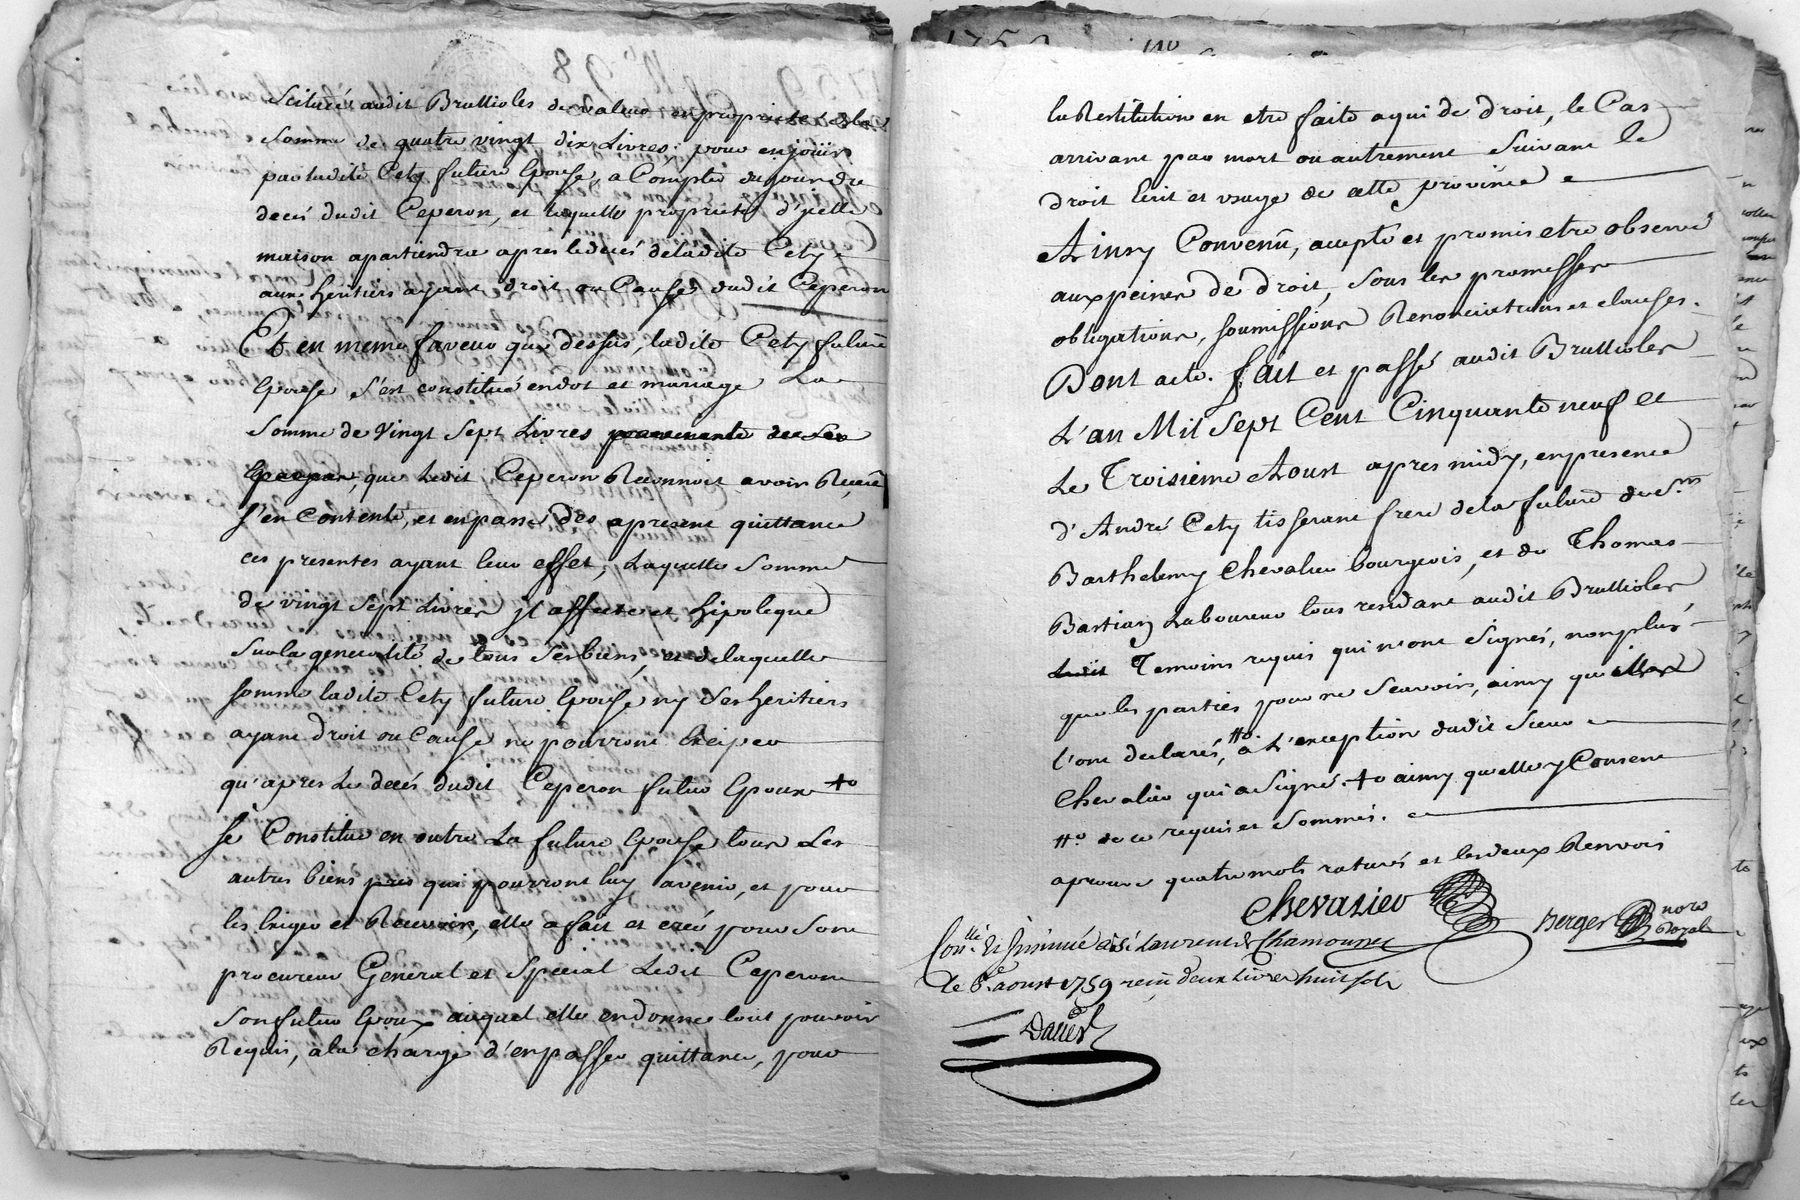 Scitüés audit Brullioles de valeur en propriete de la
Somme de quatre vingt dix Livres; pour en joüir
par ladite Cety future Epouse, a Compter du jour du
decés dudit Ceperon, et laquelle proprieté d'jcelle
maison apartiendra apres le decés de ladite Cety
aux heritiers ayant droit ou Cause dudit Ceperon
Et en meme faveur que dessus, ladite Cety future
Epouse s'est constitué en dot et mariage La
Somme de Vingt Sept Livres provenante de ses
Epargnes, que Ledit Ceperon Reconnoit avoir Reçüe
s'en contente, et en passe des apresent quittance
ces presentes ayant leur effet; Laquelle Somme
de vingt Sept Livres jl affecte et hipoteque
Sur la generalité de tous Ses biens, et de laquelle
somme ladite Cety future Epouse ny Ses heritiers
ayant droit ou Cause ne pourront Exiger
qu'apres Le decés dudit Ceperon futur Epoux +o
Se Constitue en outre La future Epouse tous Les
autres biens qui pourront luy avenir, et pour
les Exiger et Recevoir, elle a fait et creé pour Son
procureur General et Special Ledit Ceperon
Son futur Epoux auquel elle en donne tout pouvoir
Requis, a la charge d'en passer quittance, pour
la Restitution en etre faite a qui de droit, le Cas
arrivant par mort ou autrement Suivant le
droit Ecrit et usage de cette province
Ainsy Convenû, accepté et promis etre observé
aux peines de droit, Sous les promesses
obligations, soumissions Renonciations et clauses.
Dont acte. fait et passé audit Brullioles
L'an Mil Sept Cent Cinquante neuf et
Le Troisieme Aoust apres midy, en presence
d'André Cety tisserant frere de la future de Sr.
Barthelemy Chevalier bourgeois, et de Thomas
Bastian Laboureur tous residant audit Brullioles
Temoins requis qui n'ont Signés, non plus
que les parties pour ne Scavoir, ainsy qu'
l'ont declarés, #o à L'exception dudit Sieur
Chevalier qui a Signé. +o ainsy qu'elle y Consent
#o de ce requis et Sommés.
aprouve quatre mots raturés et les deux Renvois
Chevalier
Berger nore Royal
Conllé. et jnsinué a St Laurent de Chamousset
le 6e. aoust 1759 reçû deux Livres huit sols